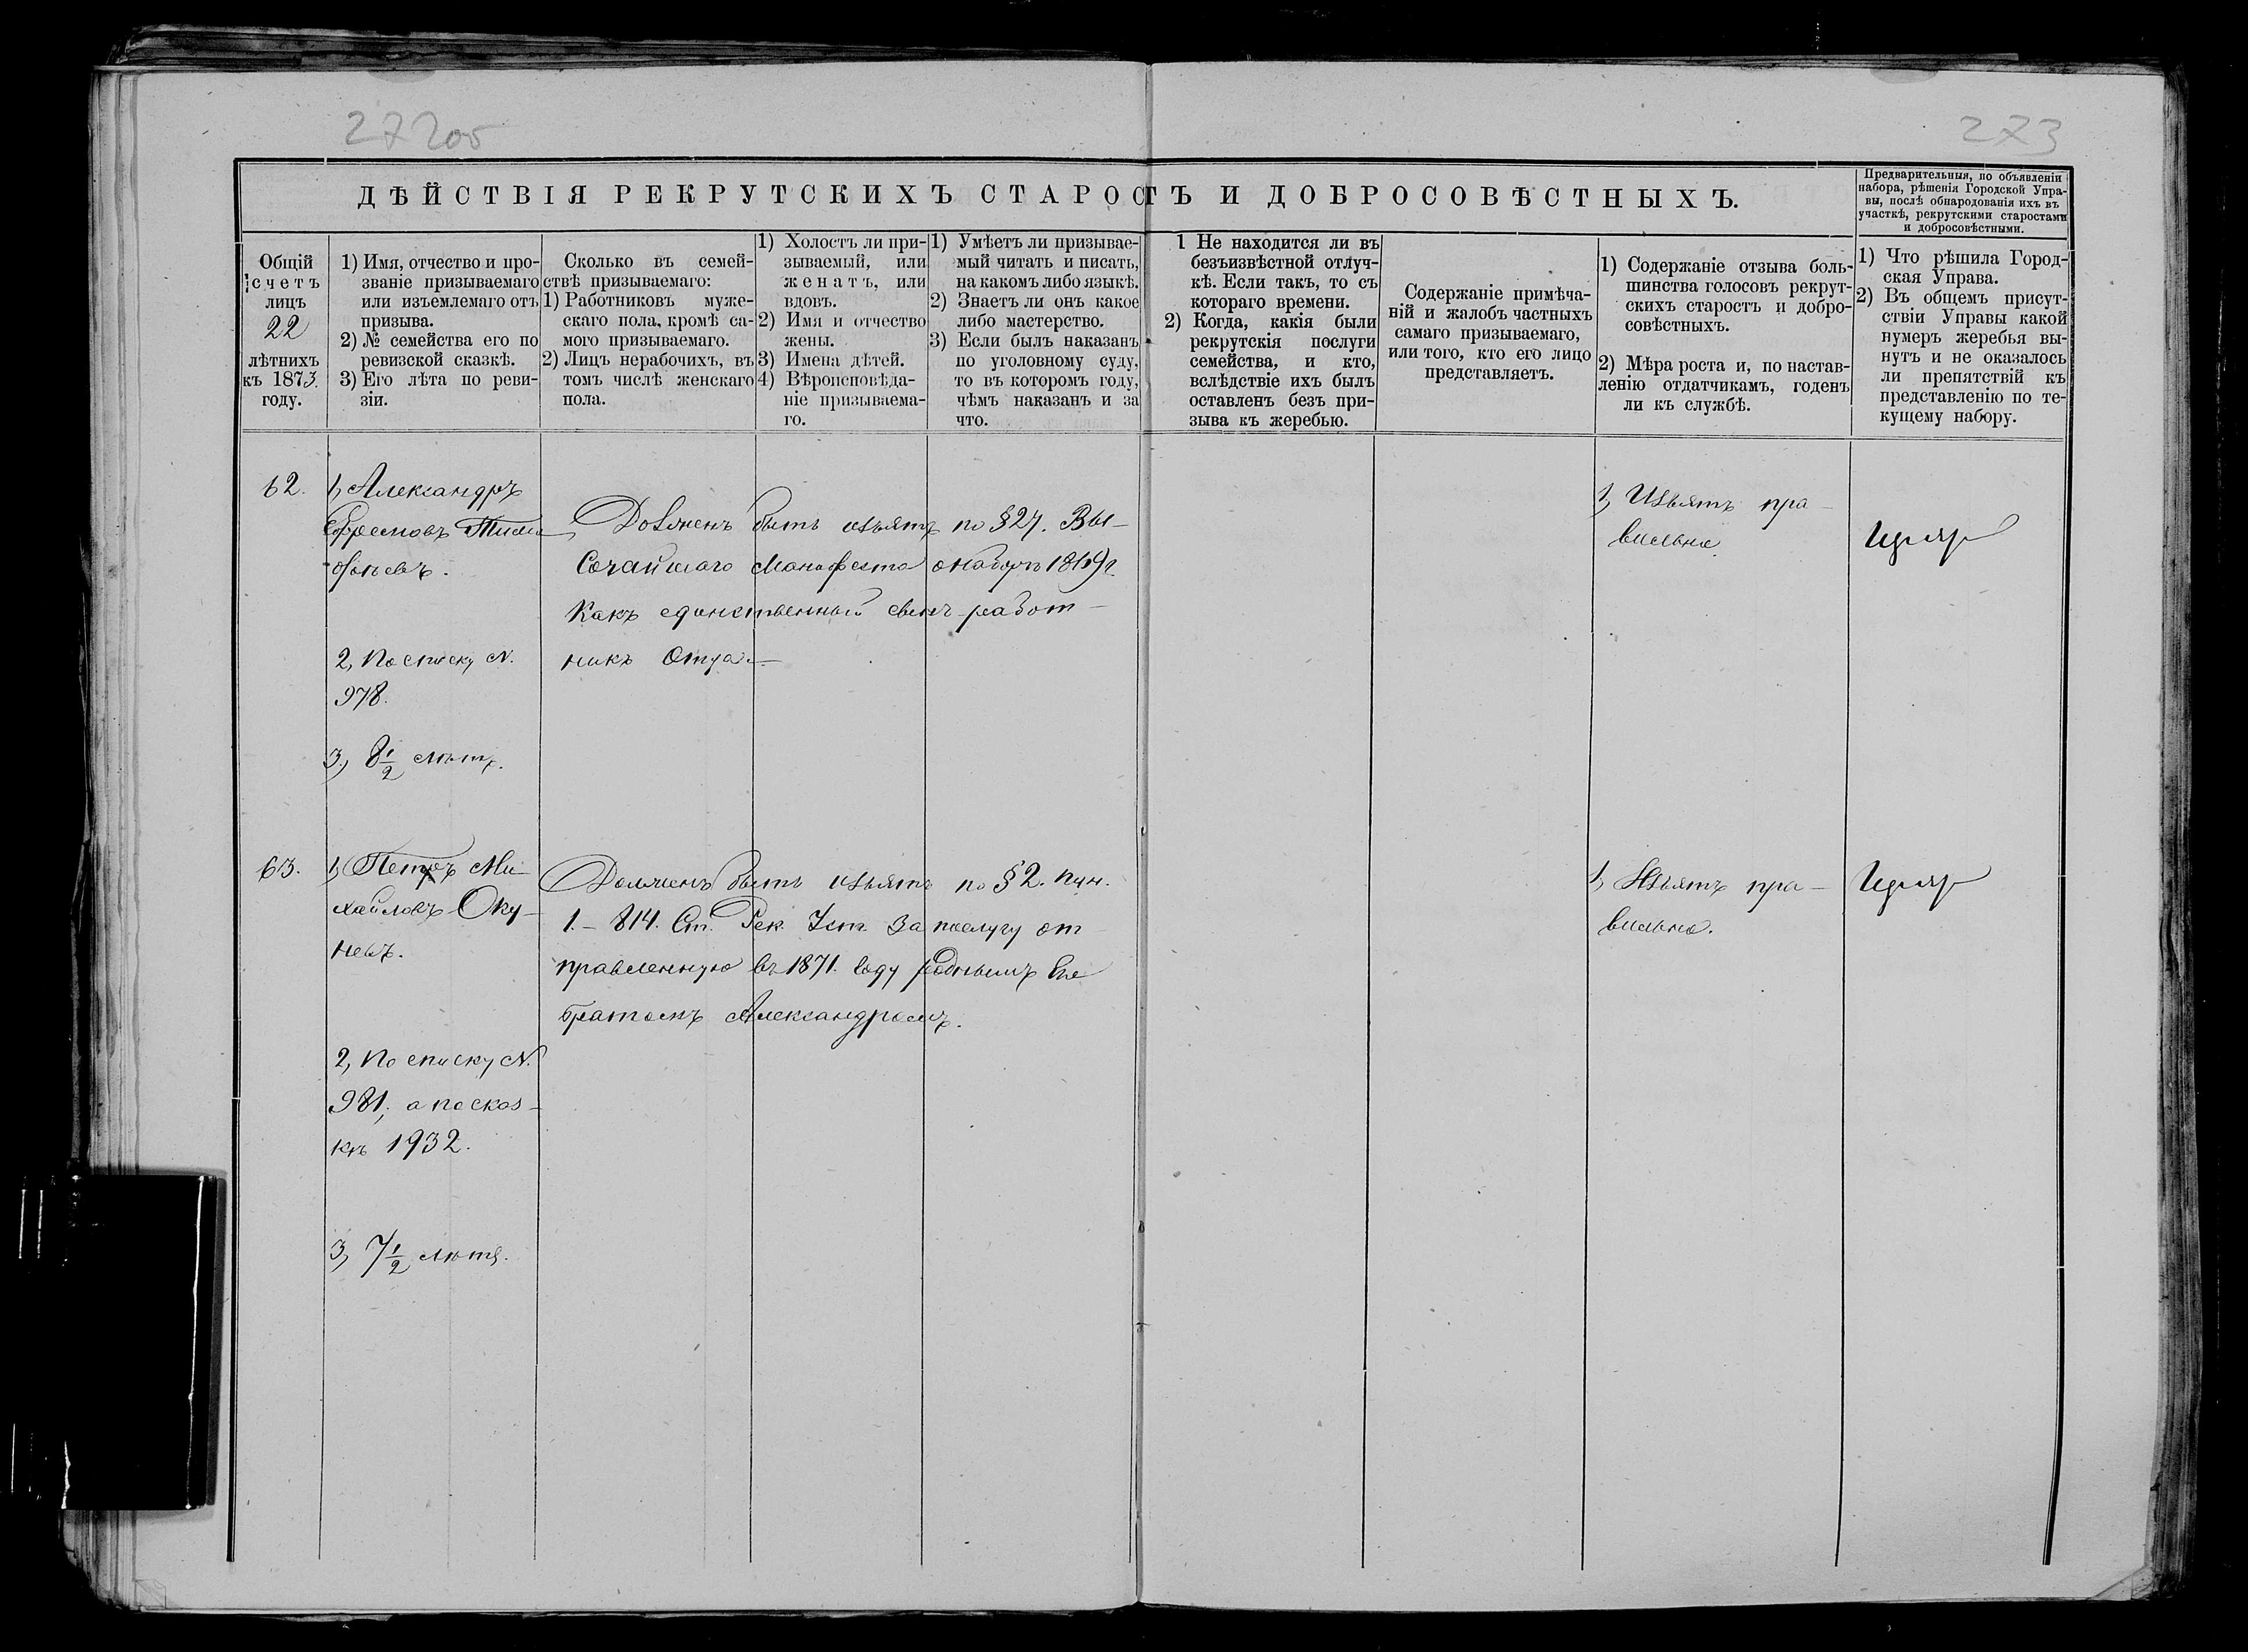 272об
273
ДѢЙСТВІЯ РЕКРУТСКИХЪ СТАРОСТЪ И ДОБРОСОВѢСТНЫХЪ.
Предварительныя, по объявленіи
набора, рѣшенія Городской Упра-
вы, послѣ обнародованія ихъ въ
участкѣ, рекрутскими старостами
и добросовѣстными.
Общій
счетъ
лицъ
22
лѣтнихъ
къ 1873.
году.
1) Имя, отчество и про-
званіе призываемаго
или изъемлемаго отъ
призыва.
2) № семейства его по
ревизской сказкѣ.
3) Его лѣта по реви-
зіи.
Сколько въ семей-
ствѣ призываемаго:
1) Работниковъ муже-
скаго пола, кромѣ са-
мого призываемаго.
2) Лицъ нерабочихъ, въ
томъ числѣ женскаго
пола.
1) Холостъ ли при-
зываемый, или
женатъ, или
вдовъ.
2) Имя и отчество
жены.
3) Имена дѣтей.
4) Вѣроисповѣда-
ніе призываема-
го.
1) Умѣетъ ли призывае-
мый читать и писать,
на какомъ либо языкѣ.
2) Знаетъ ли онъ какое
либо мастерство.
3) Если былъ наказанъ
по уголовному суду,
то въ которомъ году,
чѣмъ наказанъ и за
что.
1 Не находится ли въ
безъизвѣстной отлуч-
кѣ. Если такъ, то съ
котораго времени.
2) Когда, какія были
рекрутскія послуги
семейства, и кто,
вслѣдствіе ихъ былъ
оставленъ безъ при-
зыва къ жеребью.
Содержаніе примѣча-
ній и жалобъ частныхъ
самаго призываемаго,
или того, кто его лицо
представляетъ.
1) Содержаніе отзыва боль-
шинства голосовъ рекрут-
скихъ старостъ и добро-
совѣстныхъ.
2) Мѣра роста и, по настав-
ленію отдатчикамъ, годенъ
ли къ службѣ.
1) Что рѣшила Город-
ская Управа.
2) Въ общемъ присут-
ствіи Управы какой
нумеръ жеребья вы-
нутъ и не оказалось
ли препятствій къ
представленію по те-
кущему набору.
62.
1, Александръ
Ефремовъ Тимо
фѣевъ.
2, По списку N.
978.
3, 8 1/2 лѣтъ.
Долженъ быть изъятъ по § 27. Вы-
сочайшаго Манифеста о наборѣ 1869 г.
Какъ единственный сынъ-работ-
никъ Отца.
1, Изъятъ пра-
вильно.
63.
1, Петръ Ми-
хайловъ Оку-
невъ.
2, По списку N.
981; а по сказ-
кѣ 1932.
3, 7 1/2 лѣтъ.
Долженъ быть изъятъ по § 2. пун.
1. – 814. Ст. Рек. Уст. За послугу от
правленную въ 1871. году роднымъ Его
братомъ Александромъ.
1, Изъятъ пра-
вильно.